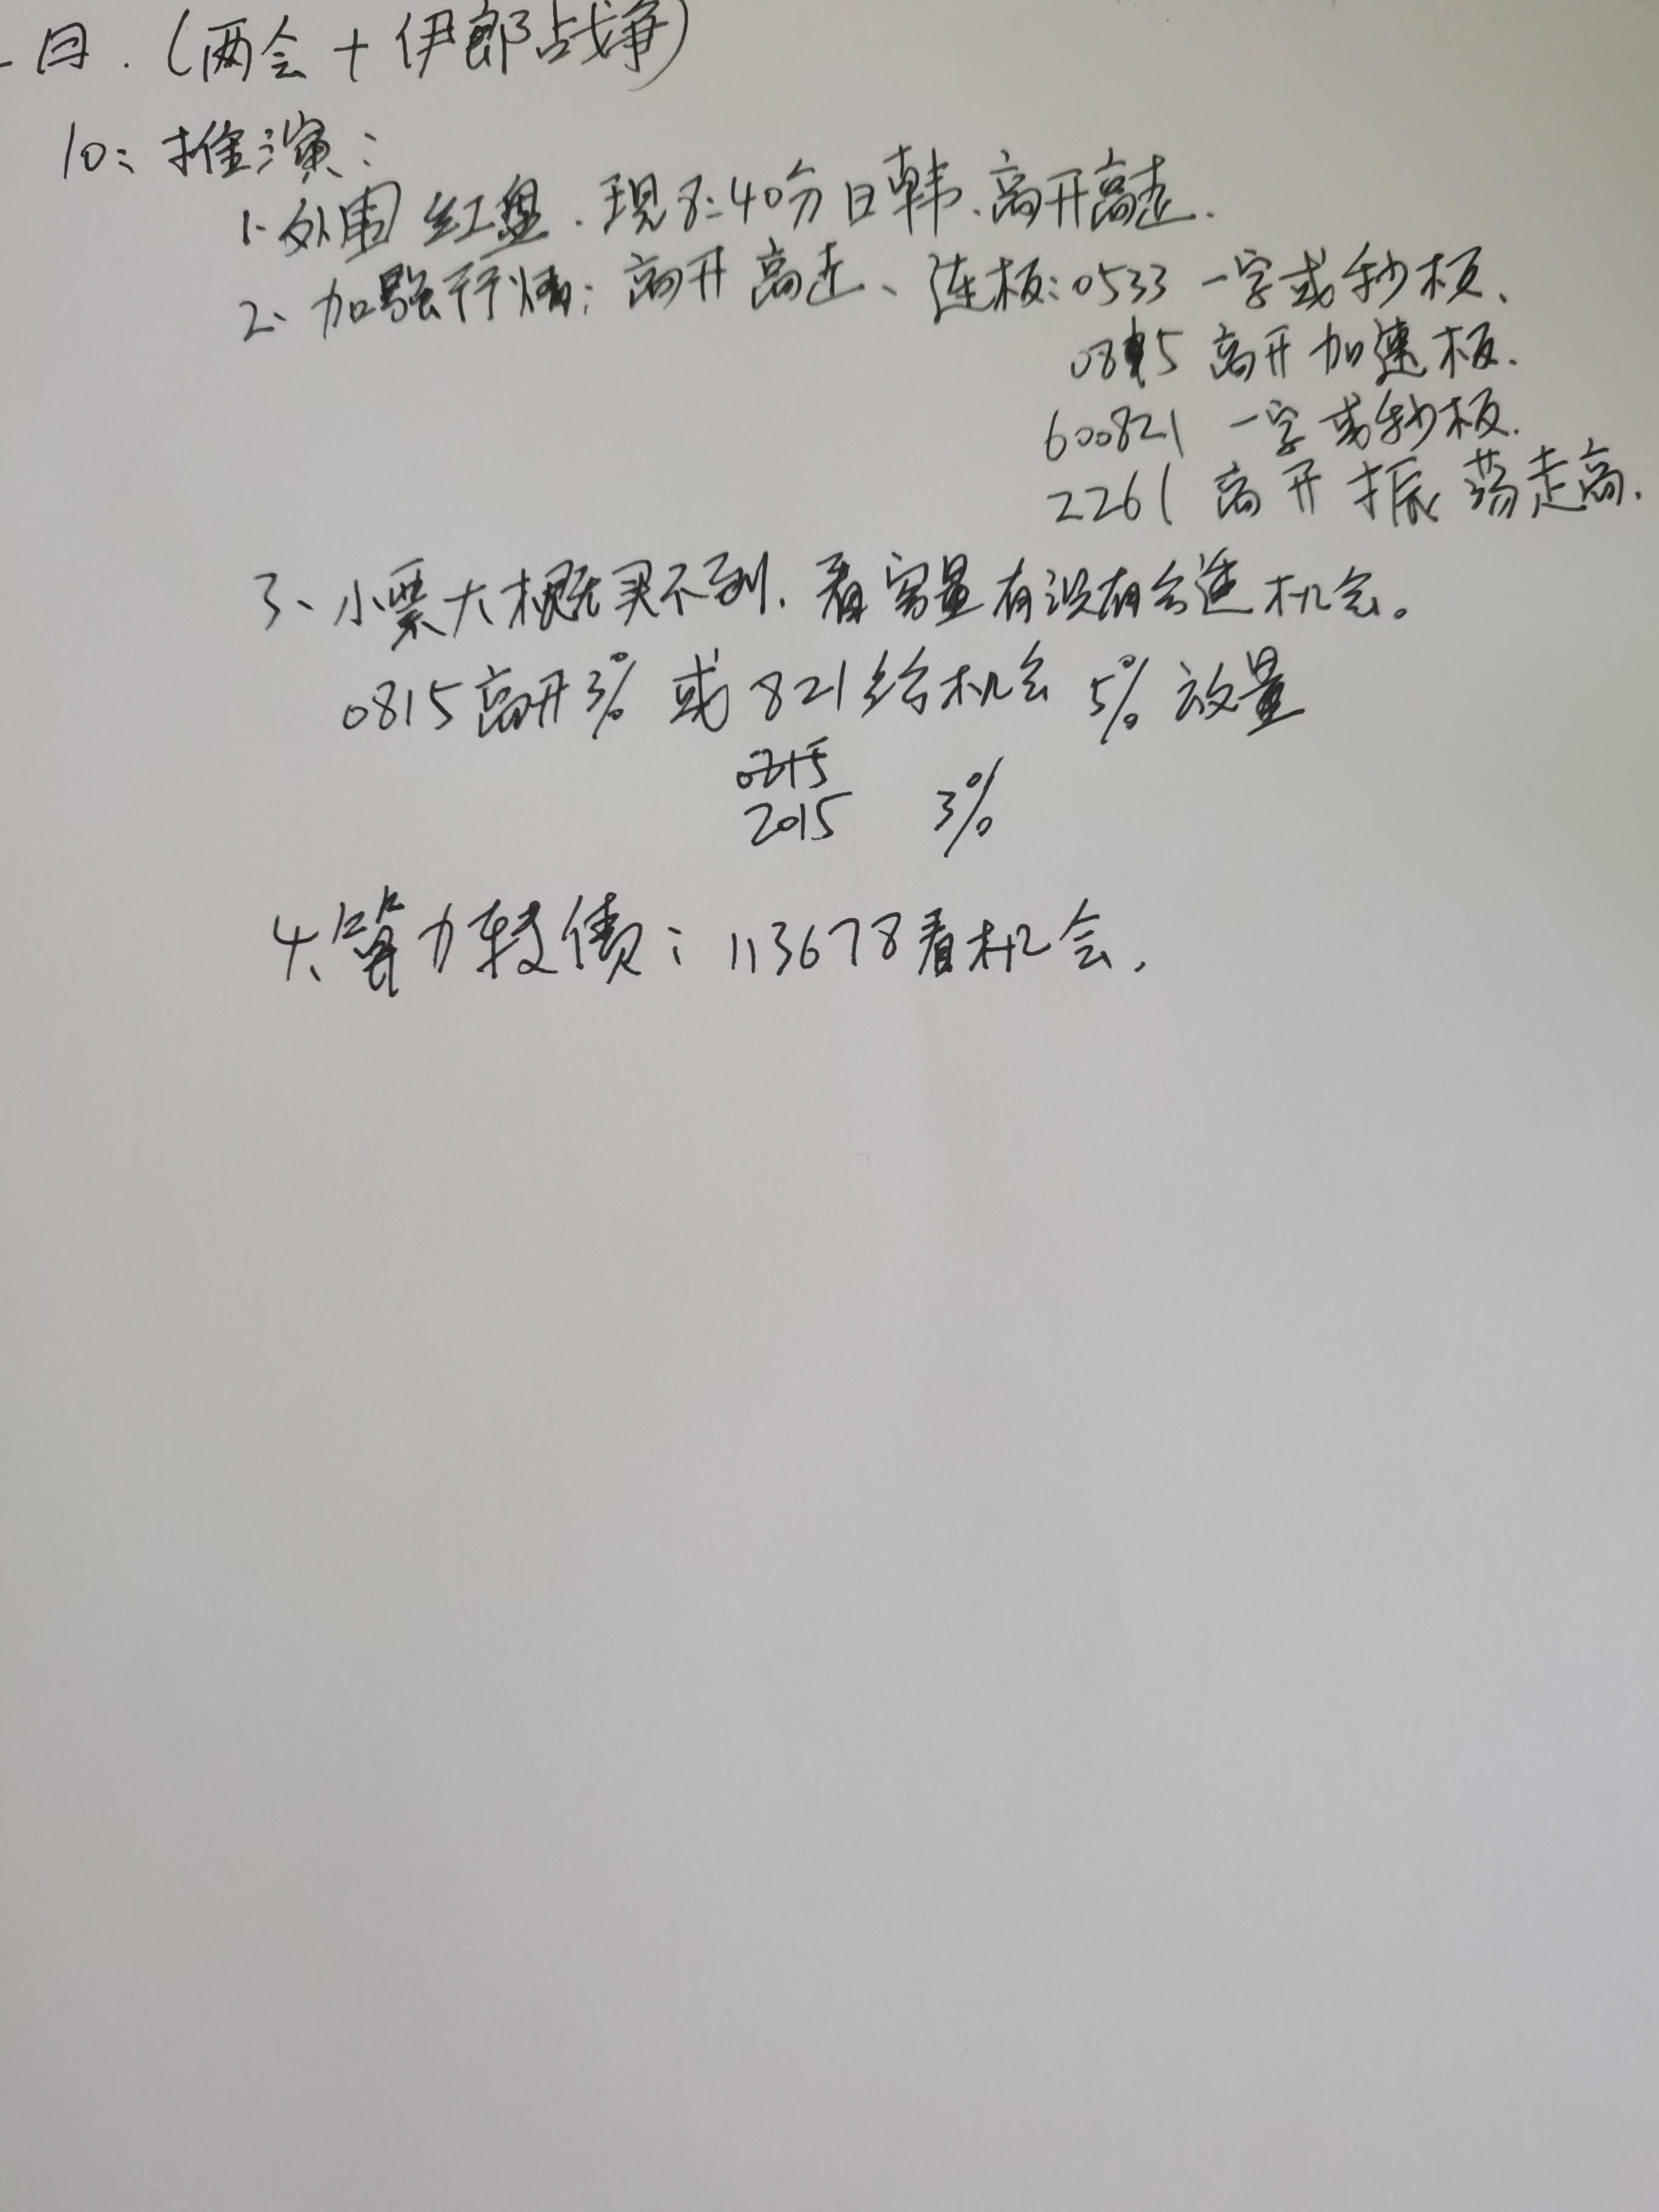 日.(两会+伊郎战争)
10:推演:
1、外围红盘.现8:40分日韩、高开高走.
2、加强行情:高开高走、连板:0533 一字或秒板、
0815 高开加速板.
600821 一字或秒板.
2261 高开振荡走高.
3、小票大概无买不到.看容量有没有合适机会。
0815高开3% 或821给机会 5% 放量
0815
2015 3%
4、算力转债:113678看机会.